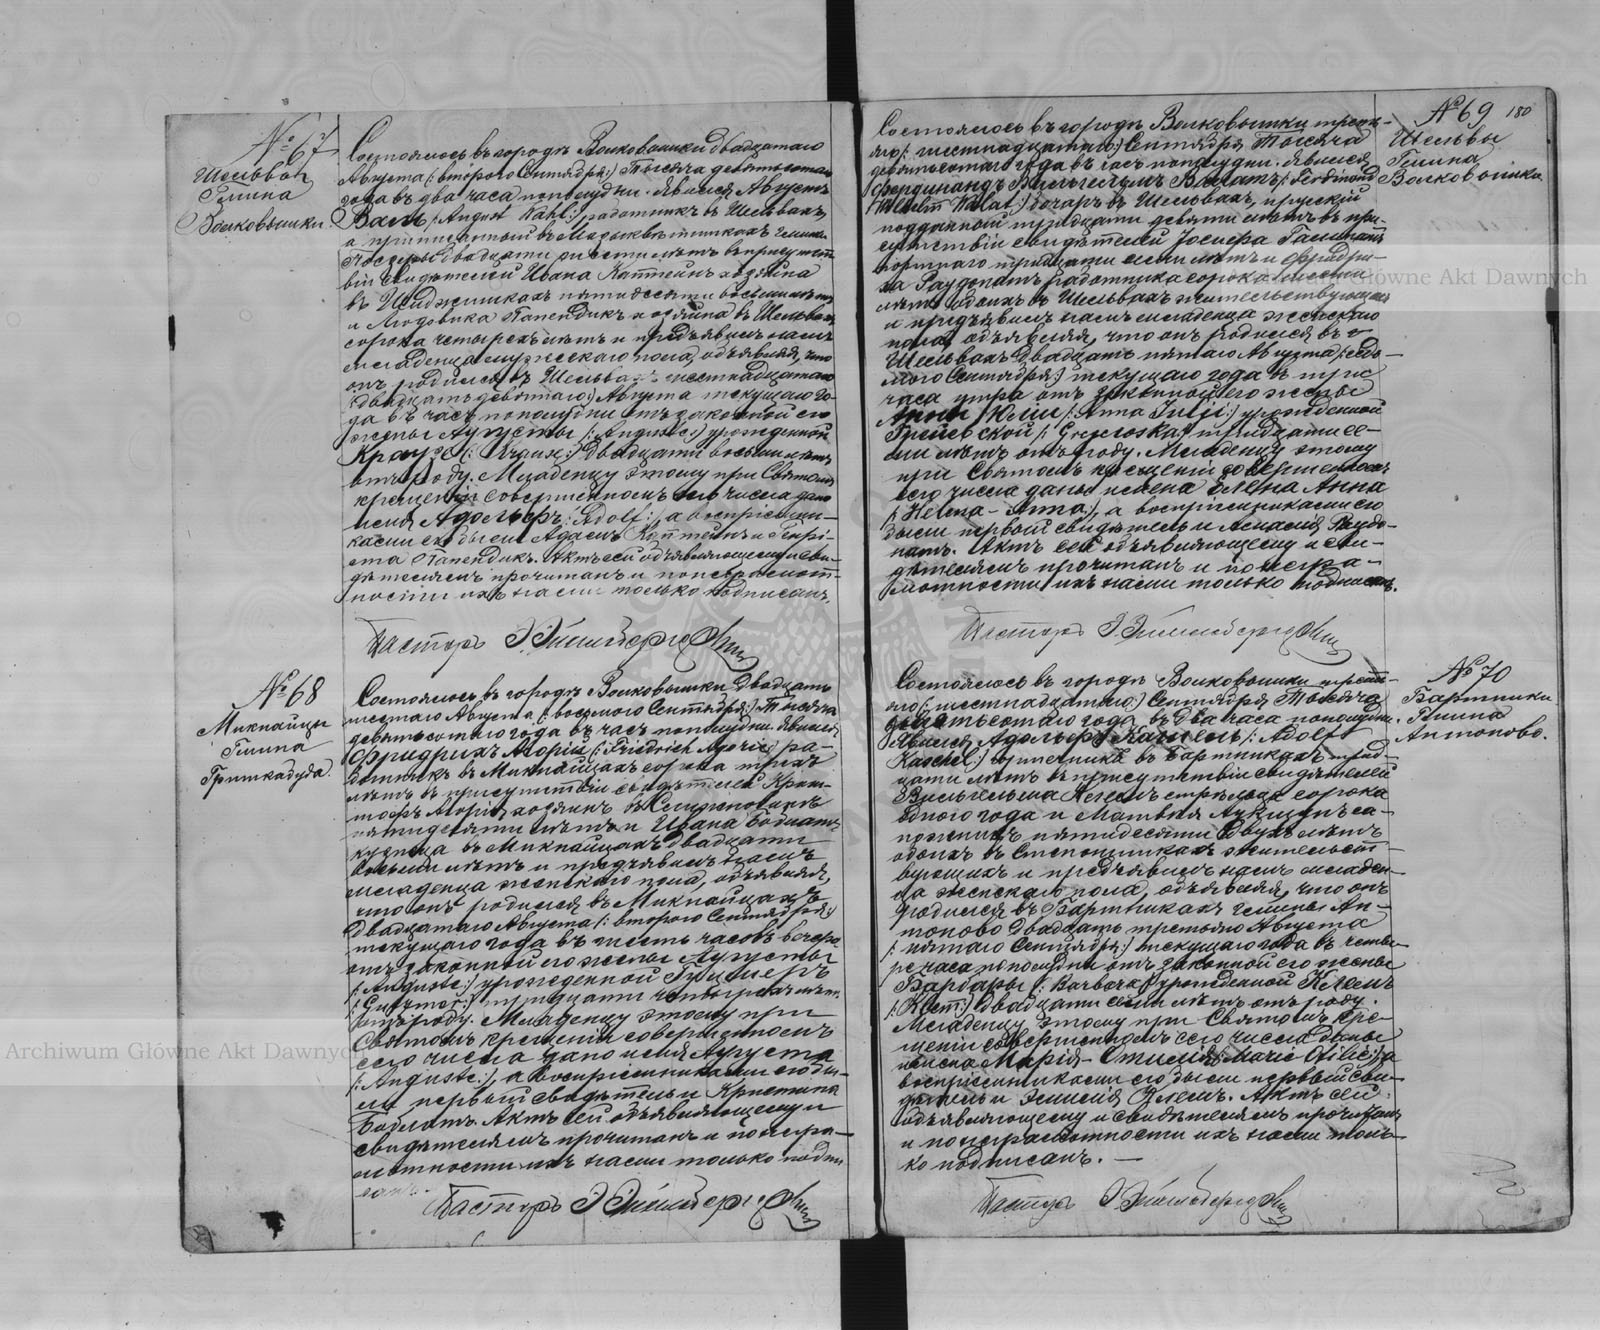 № 67
Шельвы
Гмина
Волковышки.
Состоялось въ городѣ Волковышки двадцатаго
Августа (: второго Сентября:) Тысяча девятьсотаго
года въ два часа пополудни. Явился Августъ
Валь (: August Wahl:) работникъ въ Шельвахъ,
а приписанный въ гмины
двадцати шести лѣтъ въ присутст-
віи свидѣтелей Ивана Каптейнъ хозяина
въ пятидесяти восьми лѣтъ
и Людовика Папендикъ хозяина въ Шельвахъ
сорока четырехъ лѣтъ и предъявилъ намъ
младенца мужескаго пола, объявляя, что
онъ родился въ Шельвахъ шестнадцатаго
(: двадцать девятаго:) Августа текущаго го-
да въ часъ пополудни отъ законной его
жены Аугусты (: Auguste:) урожденной
Краузе (: Krause:) двадцати восьми лѣтъ
отъ роду. Младенцу этому при Святомъ
крещеніи совершенномъ сего числа дано
имя Адольфъ (: Adolf:), а воспріемни-
ками его были Адамъ Каптейнъ и Генрі-
ета Папендикъ. Актъ сей объявляющему и сви-
дѣтелямъ прочитанъ и по неграмот-
ности ихъ нами только подписанъ.
Пасторъ
№ 68
Микнайцы
Гмина
Гришкабуда.
Состоялось въ городѣ Волковышки двадцать
шестаго Августа (: восьмого Сентября:) Тысяча
девятьсотаго года въ часъ пополудни. Явился
Фридрихъ (: Friedrich :) ра-
ботникъ въ Микнайцахъ сорока трехъ
лѣтъ въ присутствіи свидѣтелей Крис-
тофъ хозяинъ въ
пятидесяти лѣтъ и Ивана
кузнеца въ Микнайцахъ двадцати
восьми лѣтъ и предъявилъ намъ
младенца женскаго пола, объявляя,
что онъ родился въ Микнайцахъ
двадцатаго Августа (: второго Сентября:)
текущаго года въ шесть часовъ вечера
отъ законной его жены Аугусты
(: Auguste:) урожденной
тридцати четырехъ лѣтъ
отъ роду. Младенцу этому при
Святомъ крещеніи совершенномъ
сего числа дано имя Аугуста
(: Auguste:), а воспріемниками его бы-
ли первый свидѣтель и Кристина
Актъ сей объявляющему и
свидѣтелямъ прочитанъ и по негра-
мотности ихъ нами только подпи
санъ.
Пасторъ
№ 69 180
Шельвы
Гмина
Волковышки
Состоялось въ городѣ Волковышки треть-
яго (: шестнадцатаго:) Сентября Тысяча
девятьсотаго года въ часъ пополудни. Явился
Фердинандъ Вильгельмъ Валатъ (: Ferdinand
Wilhelm Walat:) бочаръ въ Шельвахъ, прускій
подданный тридцати девяти лѣтъ въ при-
сутствіи свидѣтелей Іосифа
портнаго тридцати семи лѣтъ и Фридри-
ха работника сорока
лѣтъ обоихъ въ Шельвахъ жительствующихъ
и предъявилъ намъ младенца женскаго
пола, объявляя, что онъ родился въ
Шельвахъ двадцать пятаго Августа (: седь-
мого Сентября:) текущаго года въ три
часа утра отъ законной его жены
Анны Юліи (: Anna Julji:) урожденной
тридцати се-
ми лѣтъ отъ роду. Младенцу этому
при Святомъ крещеніи совершенномъ
сего числа даны имена Елена Анна
(: Helena-Anna:), а воспріемниками его
были первый свидѣтель и Амалія
Актъ сей объявляющему и сви-
дѣтелямъ прочитанъ и по негра-
мотности ихъ нами только подписанъ.
Пасторъ
№ 70
Бартники
Гмина
Антоново.
Состоялось въ городѣ Волковышки треть-
яго (: шестнадцатаго:) Сентября Тысяча
девятьсотаго года въ два часа пополудни.
Явился Адольфъ (: Adolf
въ Бартникахъ трид-
цати лѣтъ въ присутствіи свидѣтелей
Вильгельма Клемъ сорока
одного года и Матвѣя са-
пожника пятидесяти двухъ лѣтъ
обоихъ въ жительст-
вующихъ и предъявилъ намъ младен-
ца женскаго пола, объявляя, что онъ
родился въ Бартникахъ гмины Ан-
тоново двадцать третьяго Августа
(: пятаго Сентября:) текущаго года въ четы-
ре часа пополудни отъ законной его жены
Барбары (: Barbara:) урожденной Клемъ
(: Klem:) двадцати семи лѣтъ отъ роду.
Младенцу этому при Святомъ кре-
щеніи совершенномъ сего числа даны
имена Марія-Отилія (: Marie Otilie:), а
воспріемниками его были первый сви-
дѣтель и Эмилія Клемъ. Актъ сей
объявляющему и свидѣтелямъ прочитанъ
и по неграмотности ихъ нами толь-
ко подписанъ. —
Пасторъ
Archiwum Główne Akt Dawnych
Główne Akt Dawnych